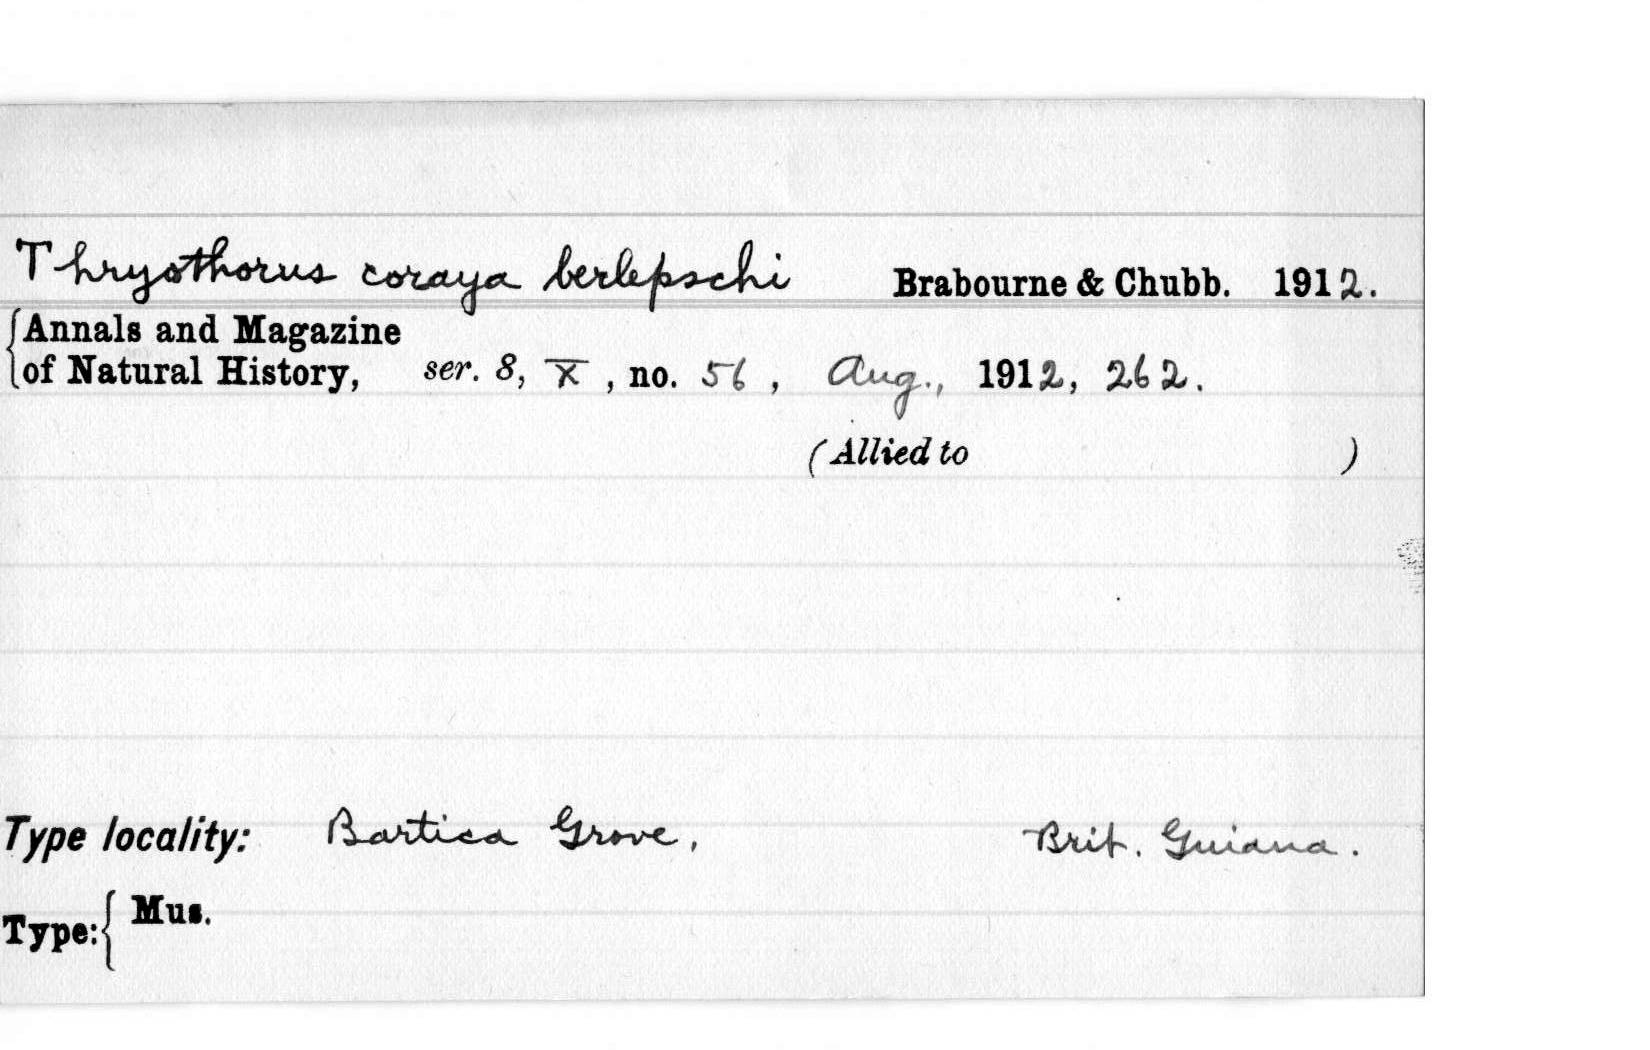 Thryothorus coraya berlepschi Brabourne & Chubb. 1912.
Annals and Magazine
of Natural History, ser. 8, X, no. 56, Aug., 1912, 262.
(Allied to )
Type locality: Bartica Grove, Brit. Guiana.
Type: Mus.